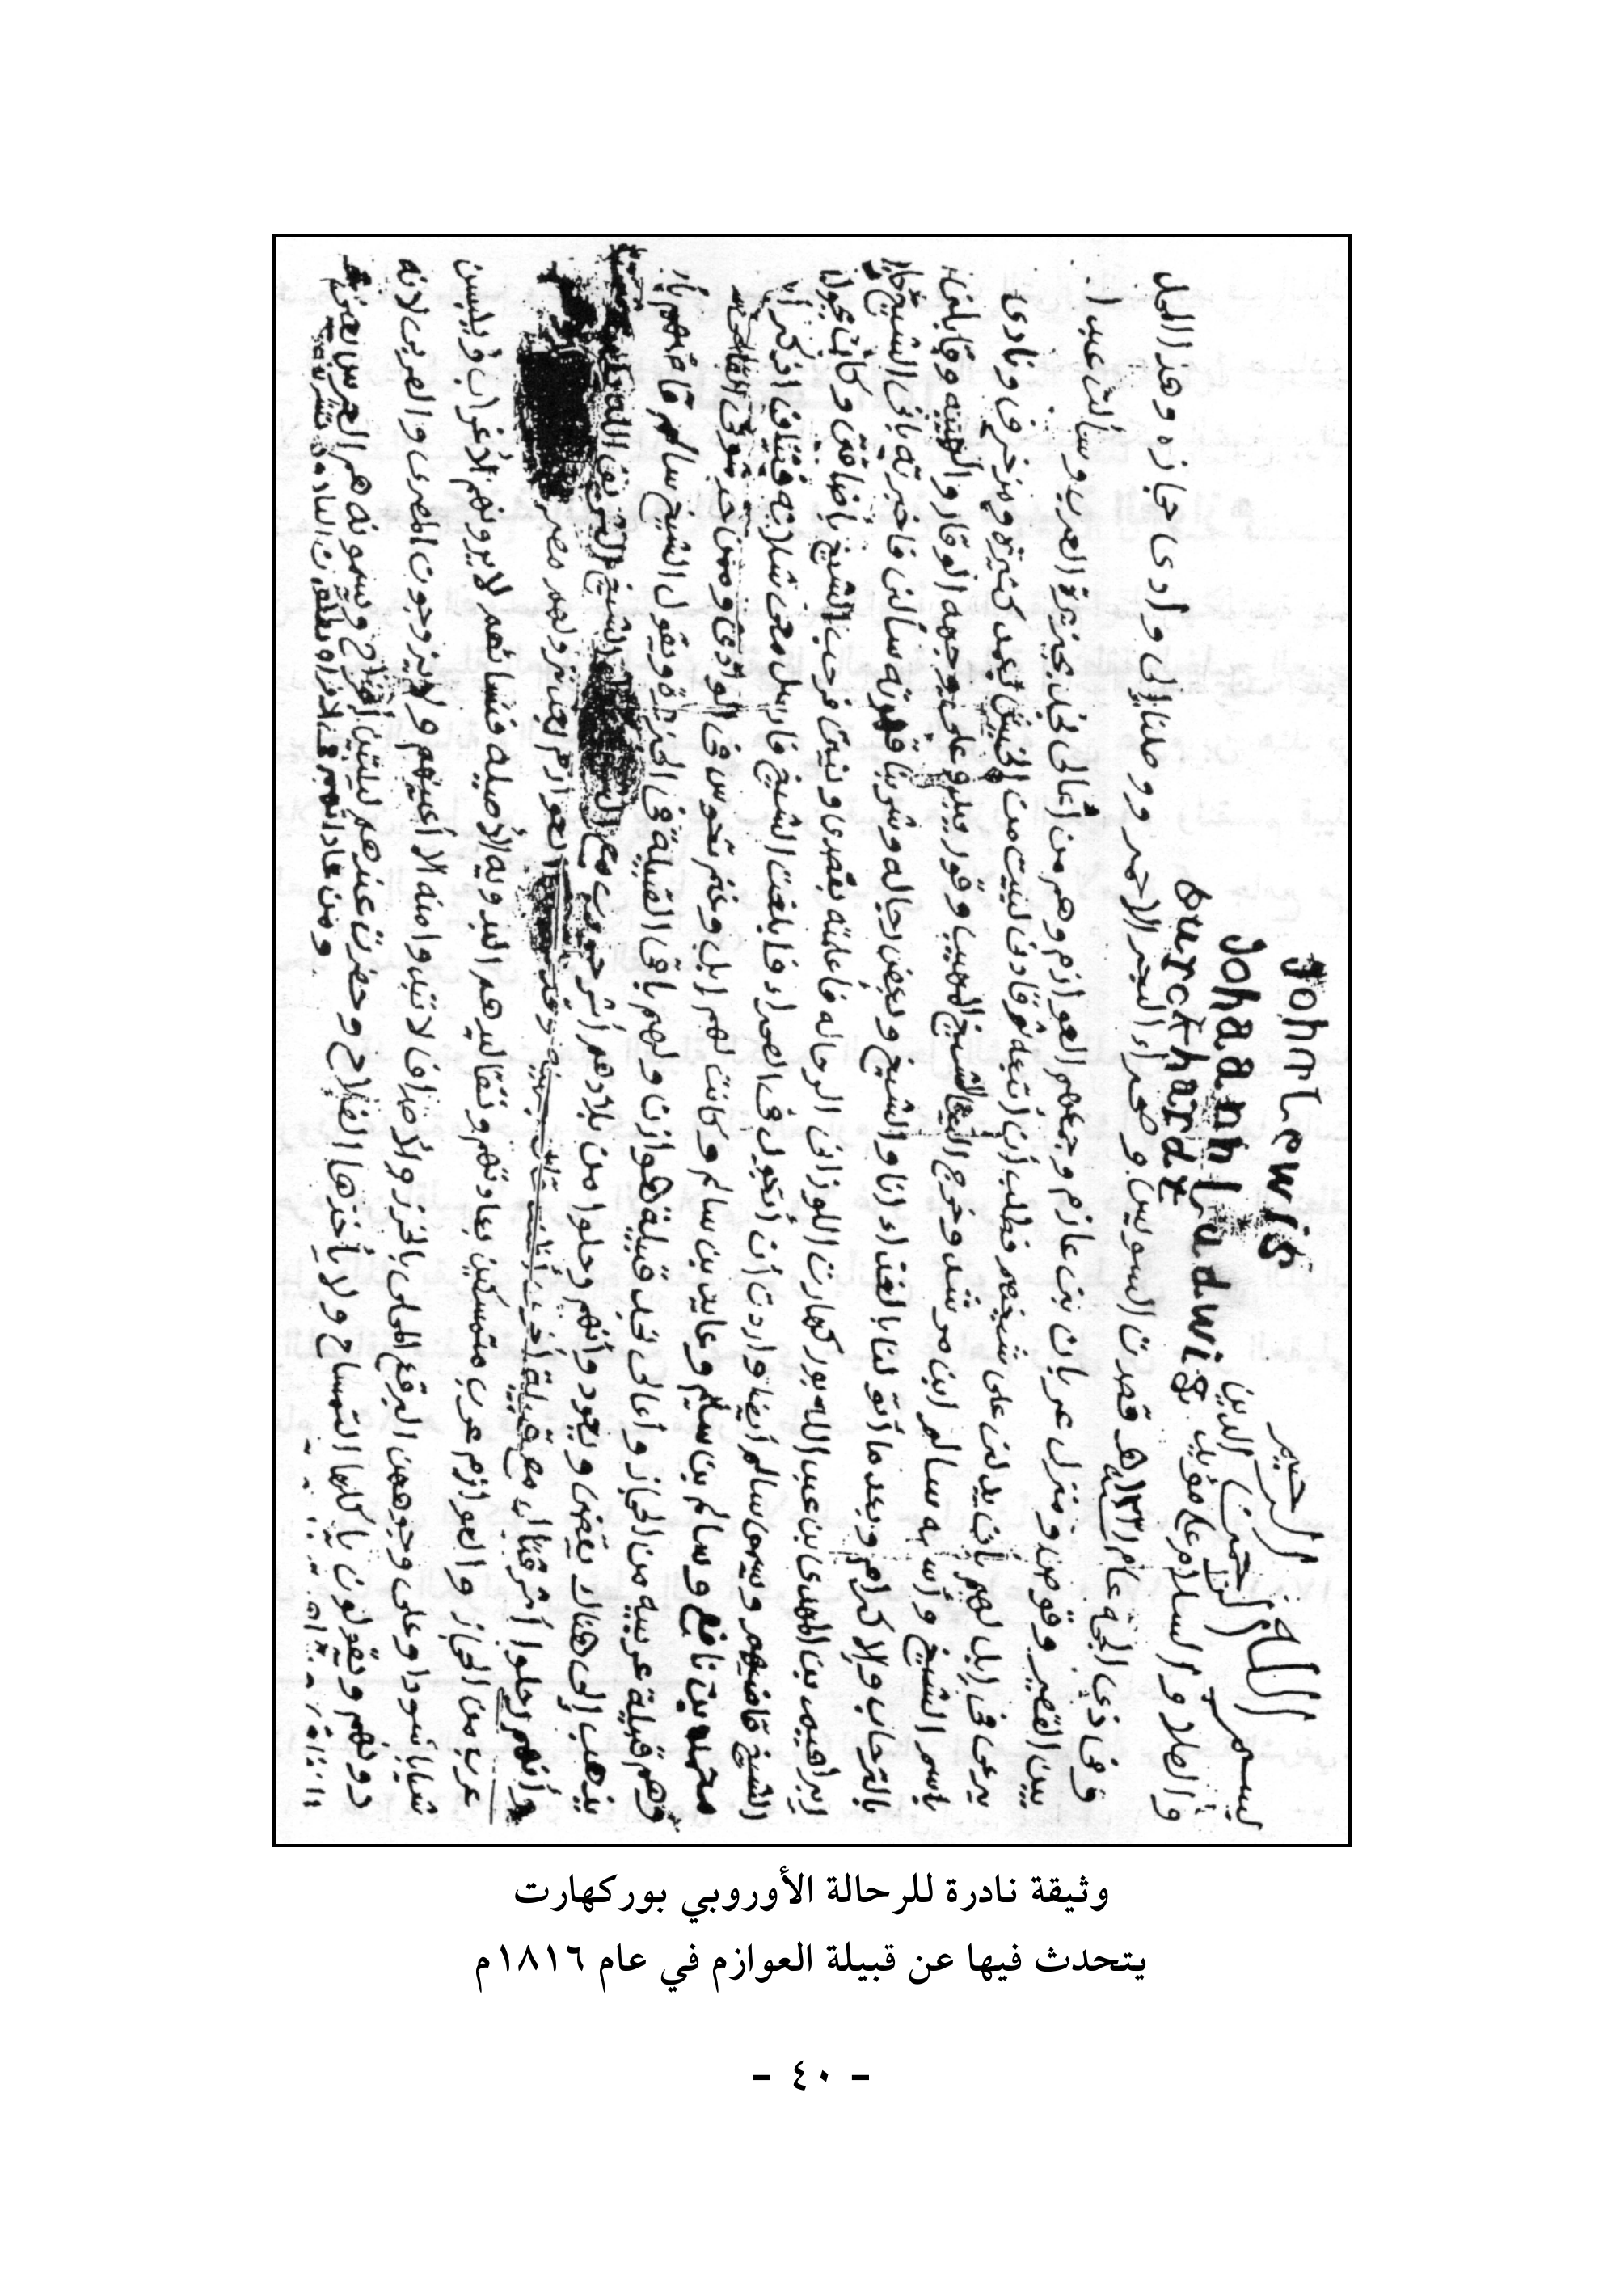 John Lewis
Johaanh Ludwig
burckhardt
بسم الله الرحمن الرحيم
والصلاة والسلام على مؤيد الدين
وفي ذي الحجة عام ١٢٣١هـ قصدت السويس وصحراء البحر الأحمر ووصلنا إلى وادى جازه وهذا المحل
بين القصير وقوص ومنزل عربان بنى عازم وجمعهم العوازم وهم من أعالى نجد بجزيرة العرب وسألت عبد ا
يرعى فى إبل لهم بأن يدلنى على شيخهم فطلب أن أتبعه ثم قادنى لبيت من الخيش بعمد كثيرة ومزخرف ونادى
باسم الشيخ وأسمه سالم ابن مرشد وخرج الشيخ المهيب وقور يبدو على وجهه الوقار والهيبه وقابلنى
بالترحاب والإكرام وبعد ما أتو لنا بالغداء أنا والشيخ وبعض رجاله وشربنا قهوته سألنى فاخبرته بأنى الشيخ
إبراهيم بن المهدى بن عبد الله بوركهارت اللوزانى الرحاله فأعلمته بقصدى ونيتى فرحب الشيخ بأضافتى وكانت
الشيخ قاضيهم ويسمى سالم أيضا واردت أن أتجول فى الصحراء فابلغت الشيخ فارسل معى ثلاثة فتيان اذكر
محمد بن نافع وسالم بن سليم وعايد بن سالم وكانت لهم إبل وغنم تحوس فى الوادى ومن
وهم قبيلة عربيه من الحجاز وأعالى نجد قبيلة هوازن ولهم باقى القبيلة فى الجزيرة ويقول الشيخ سالم قاضيهم بأن
يذهب إلى هناك بعض ويعود وأنهم رحلوا من بلادهم أثر حرب مع
وأنهم رحلوا أثر قتال مع قبيلة أخرى
عرب من الحجاز والعوازم عرب متمسكين بعادتهم وتقاليدهم البدويه الأصيله فنسائهم لا يرونهم الأغراب ويلبسن
ثيابا سودا وعلى وجوههن البرقع المحلى بالخرز والأصداف لا تبدو منه الا أعينهم ولا يتزوجون المصرى والعربى لانه
دونهم ويقولون يأكلها التمساح ولا يأخذها الفلاح وحضرت عندهم ليلتين أفراح ويسمونه هم العرس
ومن عاداتهم
وثيقة نادرة للرحالة الأوروبي بوركهارت
يتحدث فيها عن قبيلة العوازم في عام ١٨١٦م
- ٤٠ -